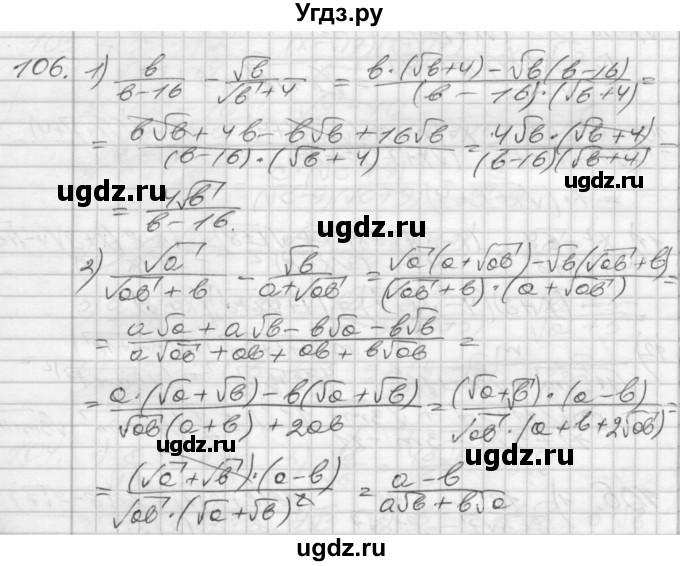 Угдз.ру
106. 1) в/(в-16) - √в/(√в+4) = (в·(√в+4)-√в(в-16))/((в-16)·(√в+4)) =
= (в√в+4в-в√в+16√в)/((в-16)·(√в+4)) = (4√в·(√в+4))/((в-16)(√в+4)) =
ugdz.ru ugdz.ru
= √в/(в-16).
ugdz.ru
2) √a/(√aв+в) - √в/(a+√aв) = (√a(a+√aв)-√в(√aв+в))/((√aв+в)·(a+√aв)) =
= (a√a+a√в-в√a-в√в)/(a√aв+aв+aв+в√aв) =
= (a·(√a+√в)-в(√a+√в))/(√aв(a+в)+2aв) = ((√a+√в)·(a-в))/(√aв·(a+в+2√aв)) =
ugdz.ru ugdz.ru
= ((√a+√в)·(a-в))/(√aв·(√a+√в)²) = (a-в)/(a√в+в√a)
ugdz.ru
ugdz.ru